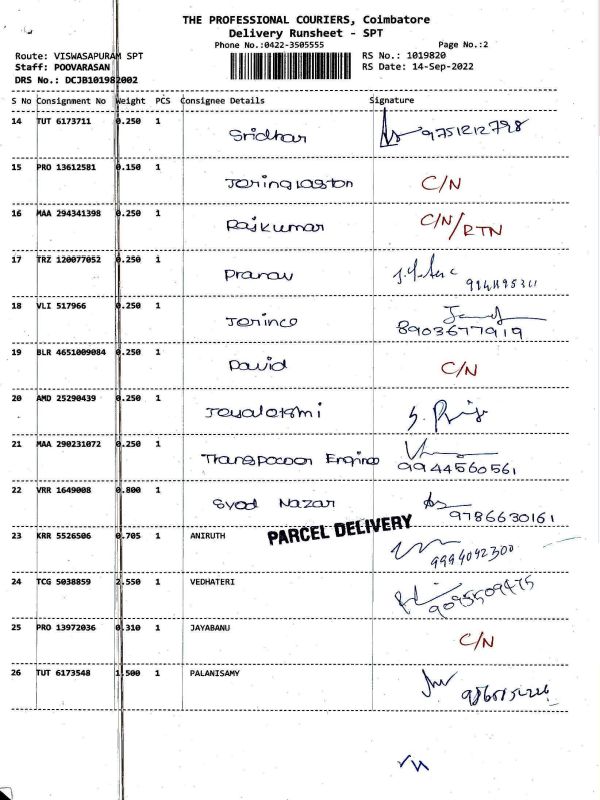 THE PROFESSIONAL COURIERS, Coimbatore
Delivery Runsheet - SPT
Phone No.:0422-3505555 Page No.:2
Route: VISWASAPURAM SPT RS No.: 1019820
Staff: POOVARASAN RS Date: 14-Sep-2022
DRS No.: DCJB101982002
S No Consignment No Weight PCS Consignee Details Signature
14 TUT 6173711 0.250 1 Sridhar 9751212798
15 PRO 13612581 0.150 1 C/N
16 MAA 294341398 0.250 1 Rajkumar C/N/RTN
17 TRZ 120077052 0.250 1 Pranav
18 VLI 517966 0.250 1 Jerince 8903677919
19 BLR 4651009084 0.250 1 David C/N
20 AMD 25290439 0.250 1
21 MAA 290231072 0.250 1 9944560561
22 VRR 1649008 0.800 1 Syed Nazar 9786630161
PARCEL DELIVERY
23 KRR 5526506 0.705 1 ANIRUTH 9994092300
24 TCG 5038859 2.550 1 VEDHATERI 9095509475
25 PRO 13972036 0.310 1 JAYABANU C/N
26 TUT 6173548 1.500 1 PALANISAMY